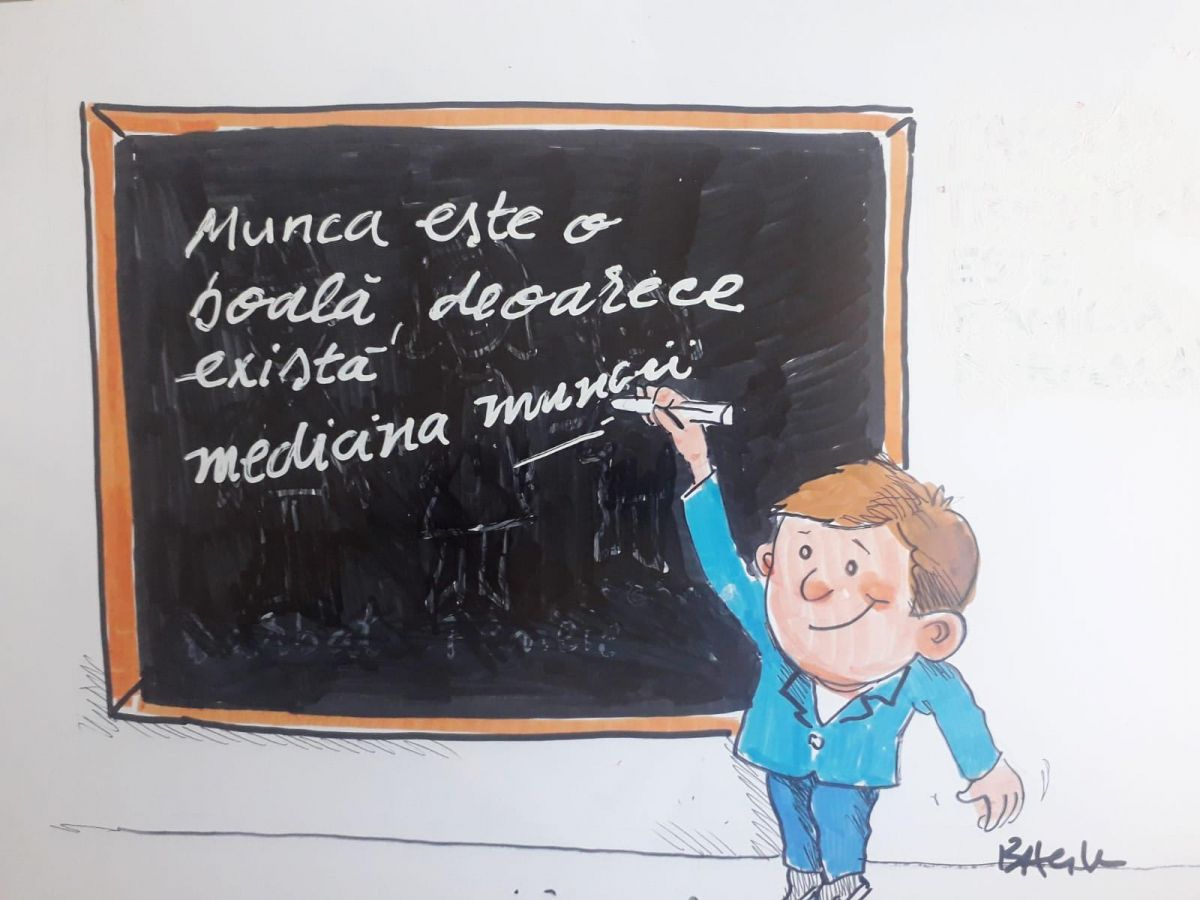 Munca este o
boală, deoarece
există
medicina muncii